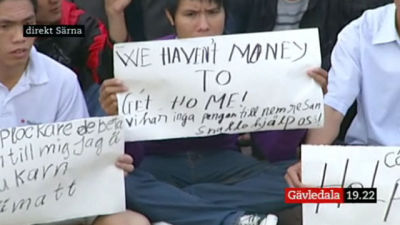 direkt Särna
WE HAVEN'T MONEY
TO
GET HO ME!
vi har inga pengar till hem resan
snälla hjälp oss!
plockare de bä
till mig Jag ä
ukarn
matt
Gävledala 19.22